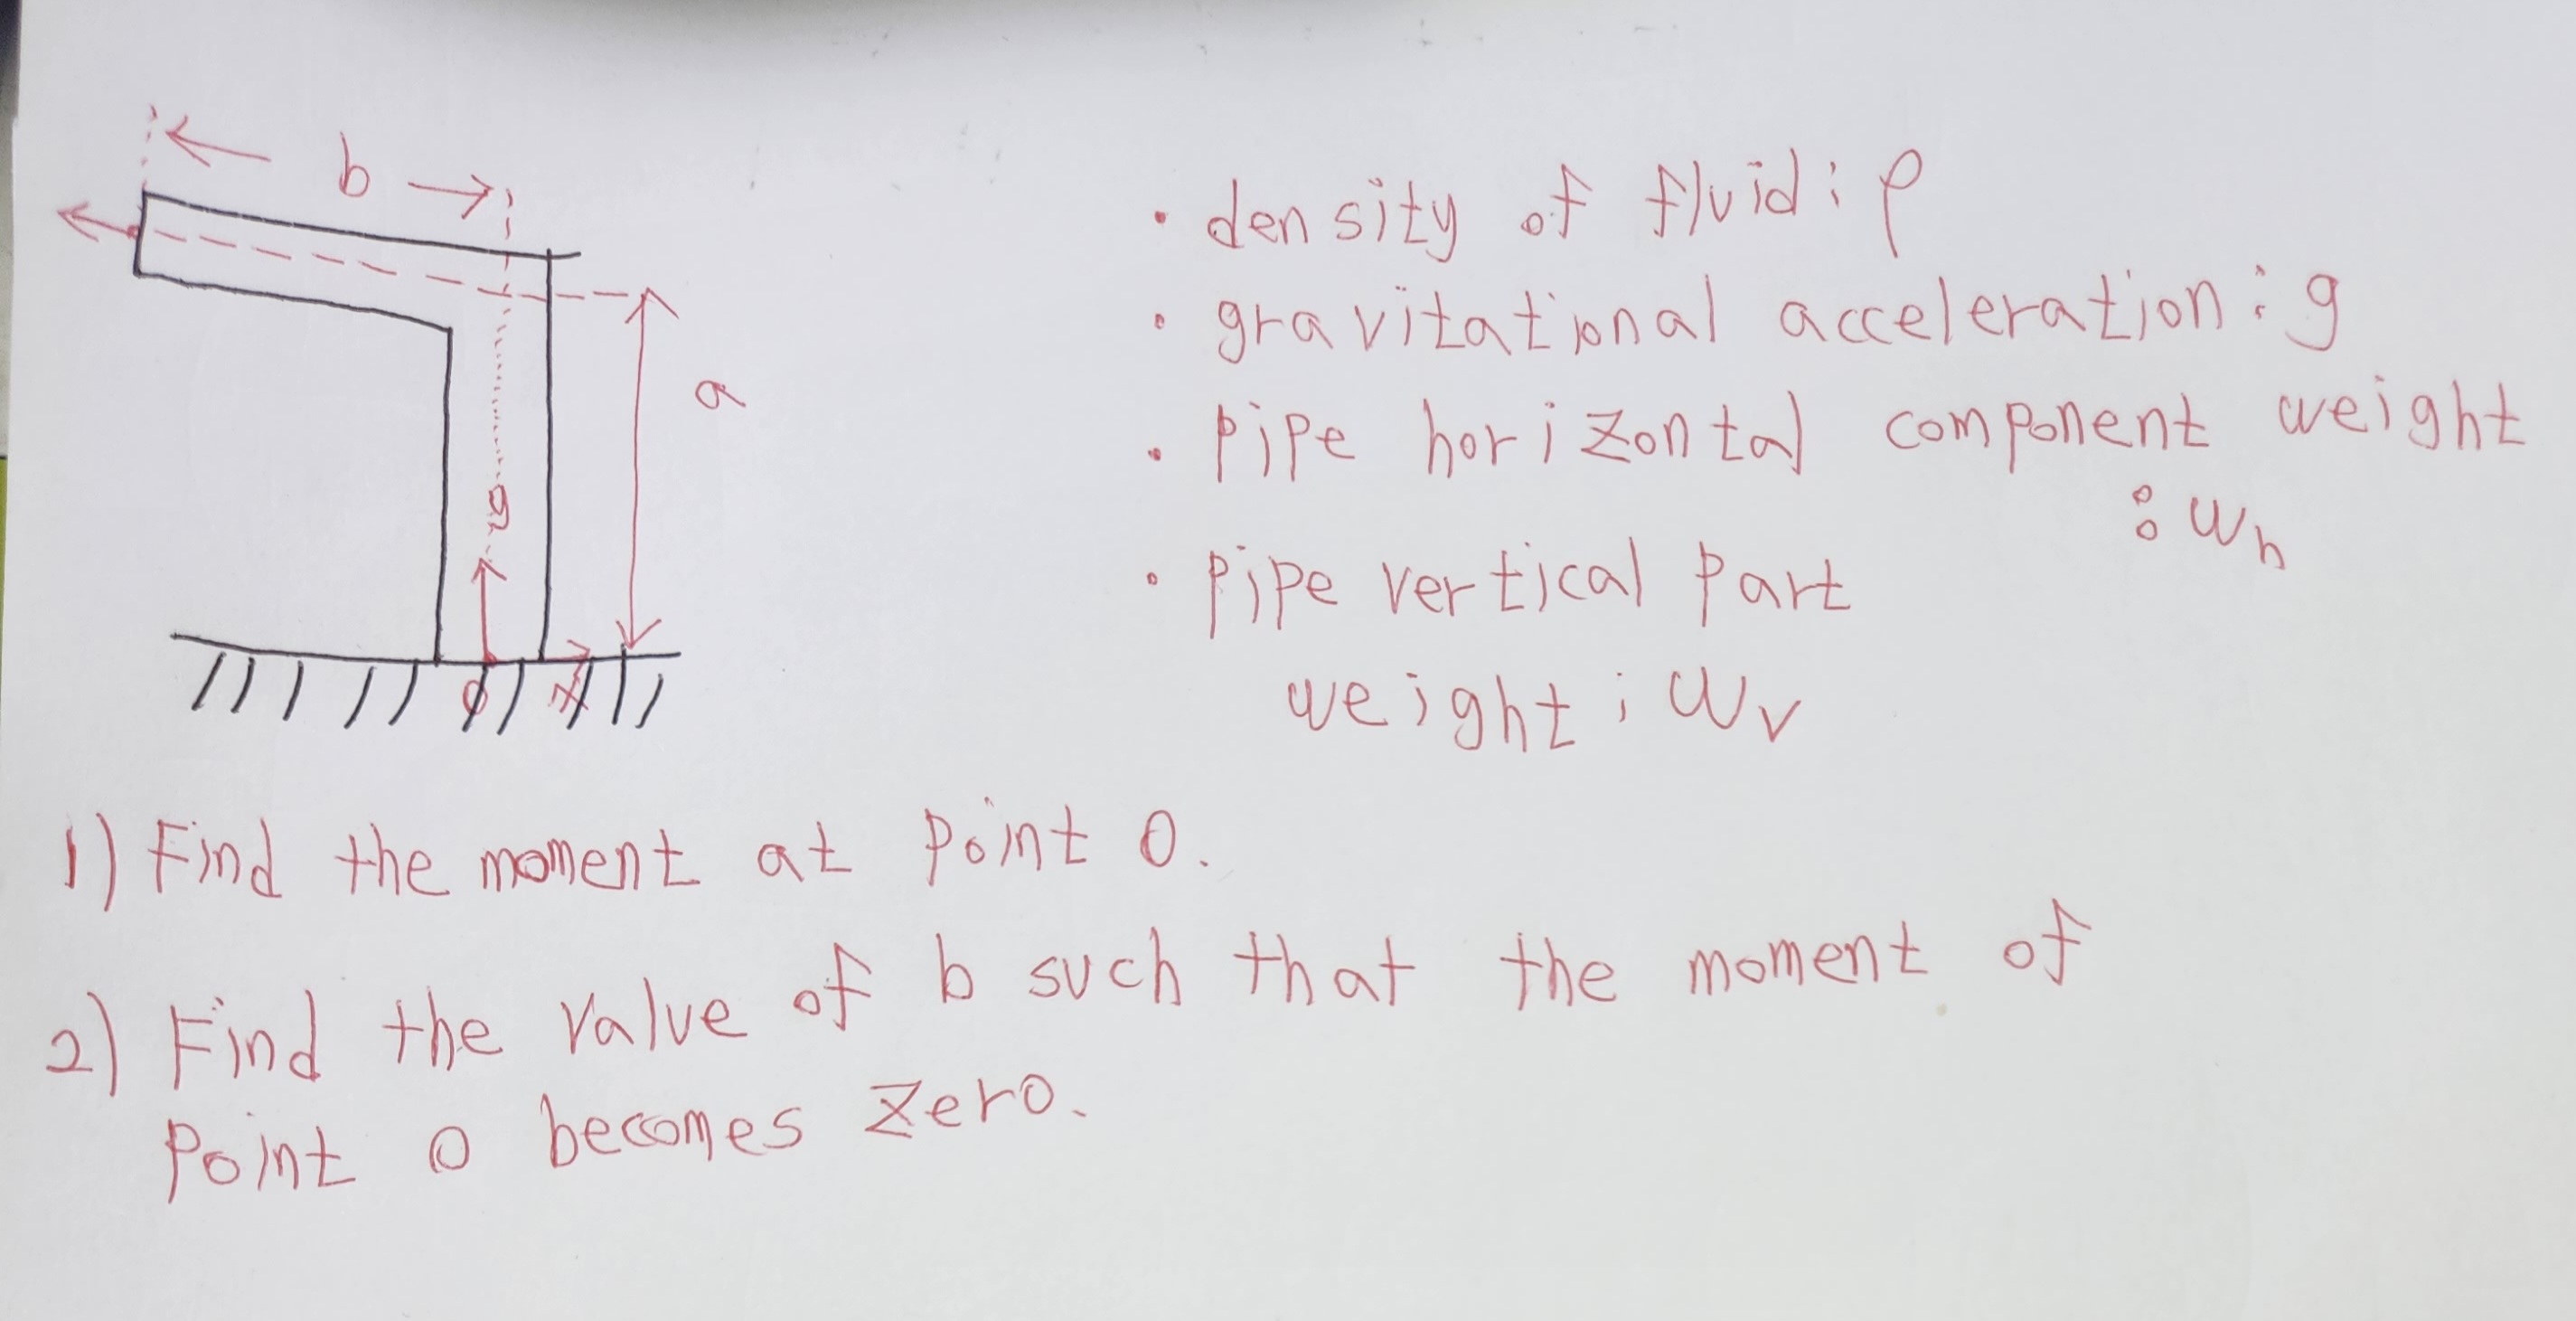 b
a
O x
· density of fluid : ρ
· gravitational acceleration : g
· pipe horizontal component weight
: Wh
· pipe vertical part
weight : Wv
1) Find the moment at point O.
2) Find the value of b such that the moment of
point O becomes zero.